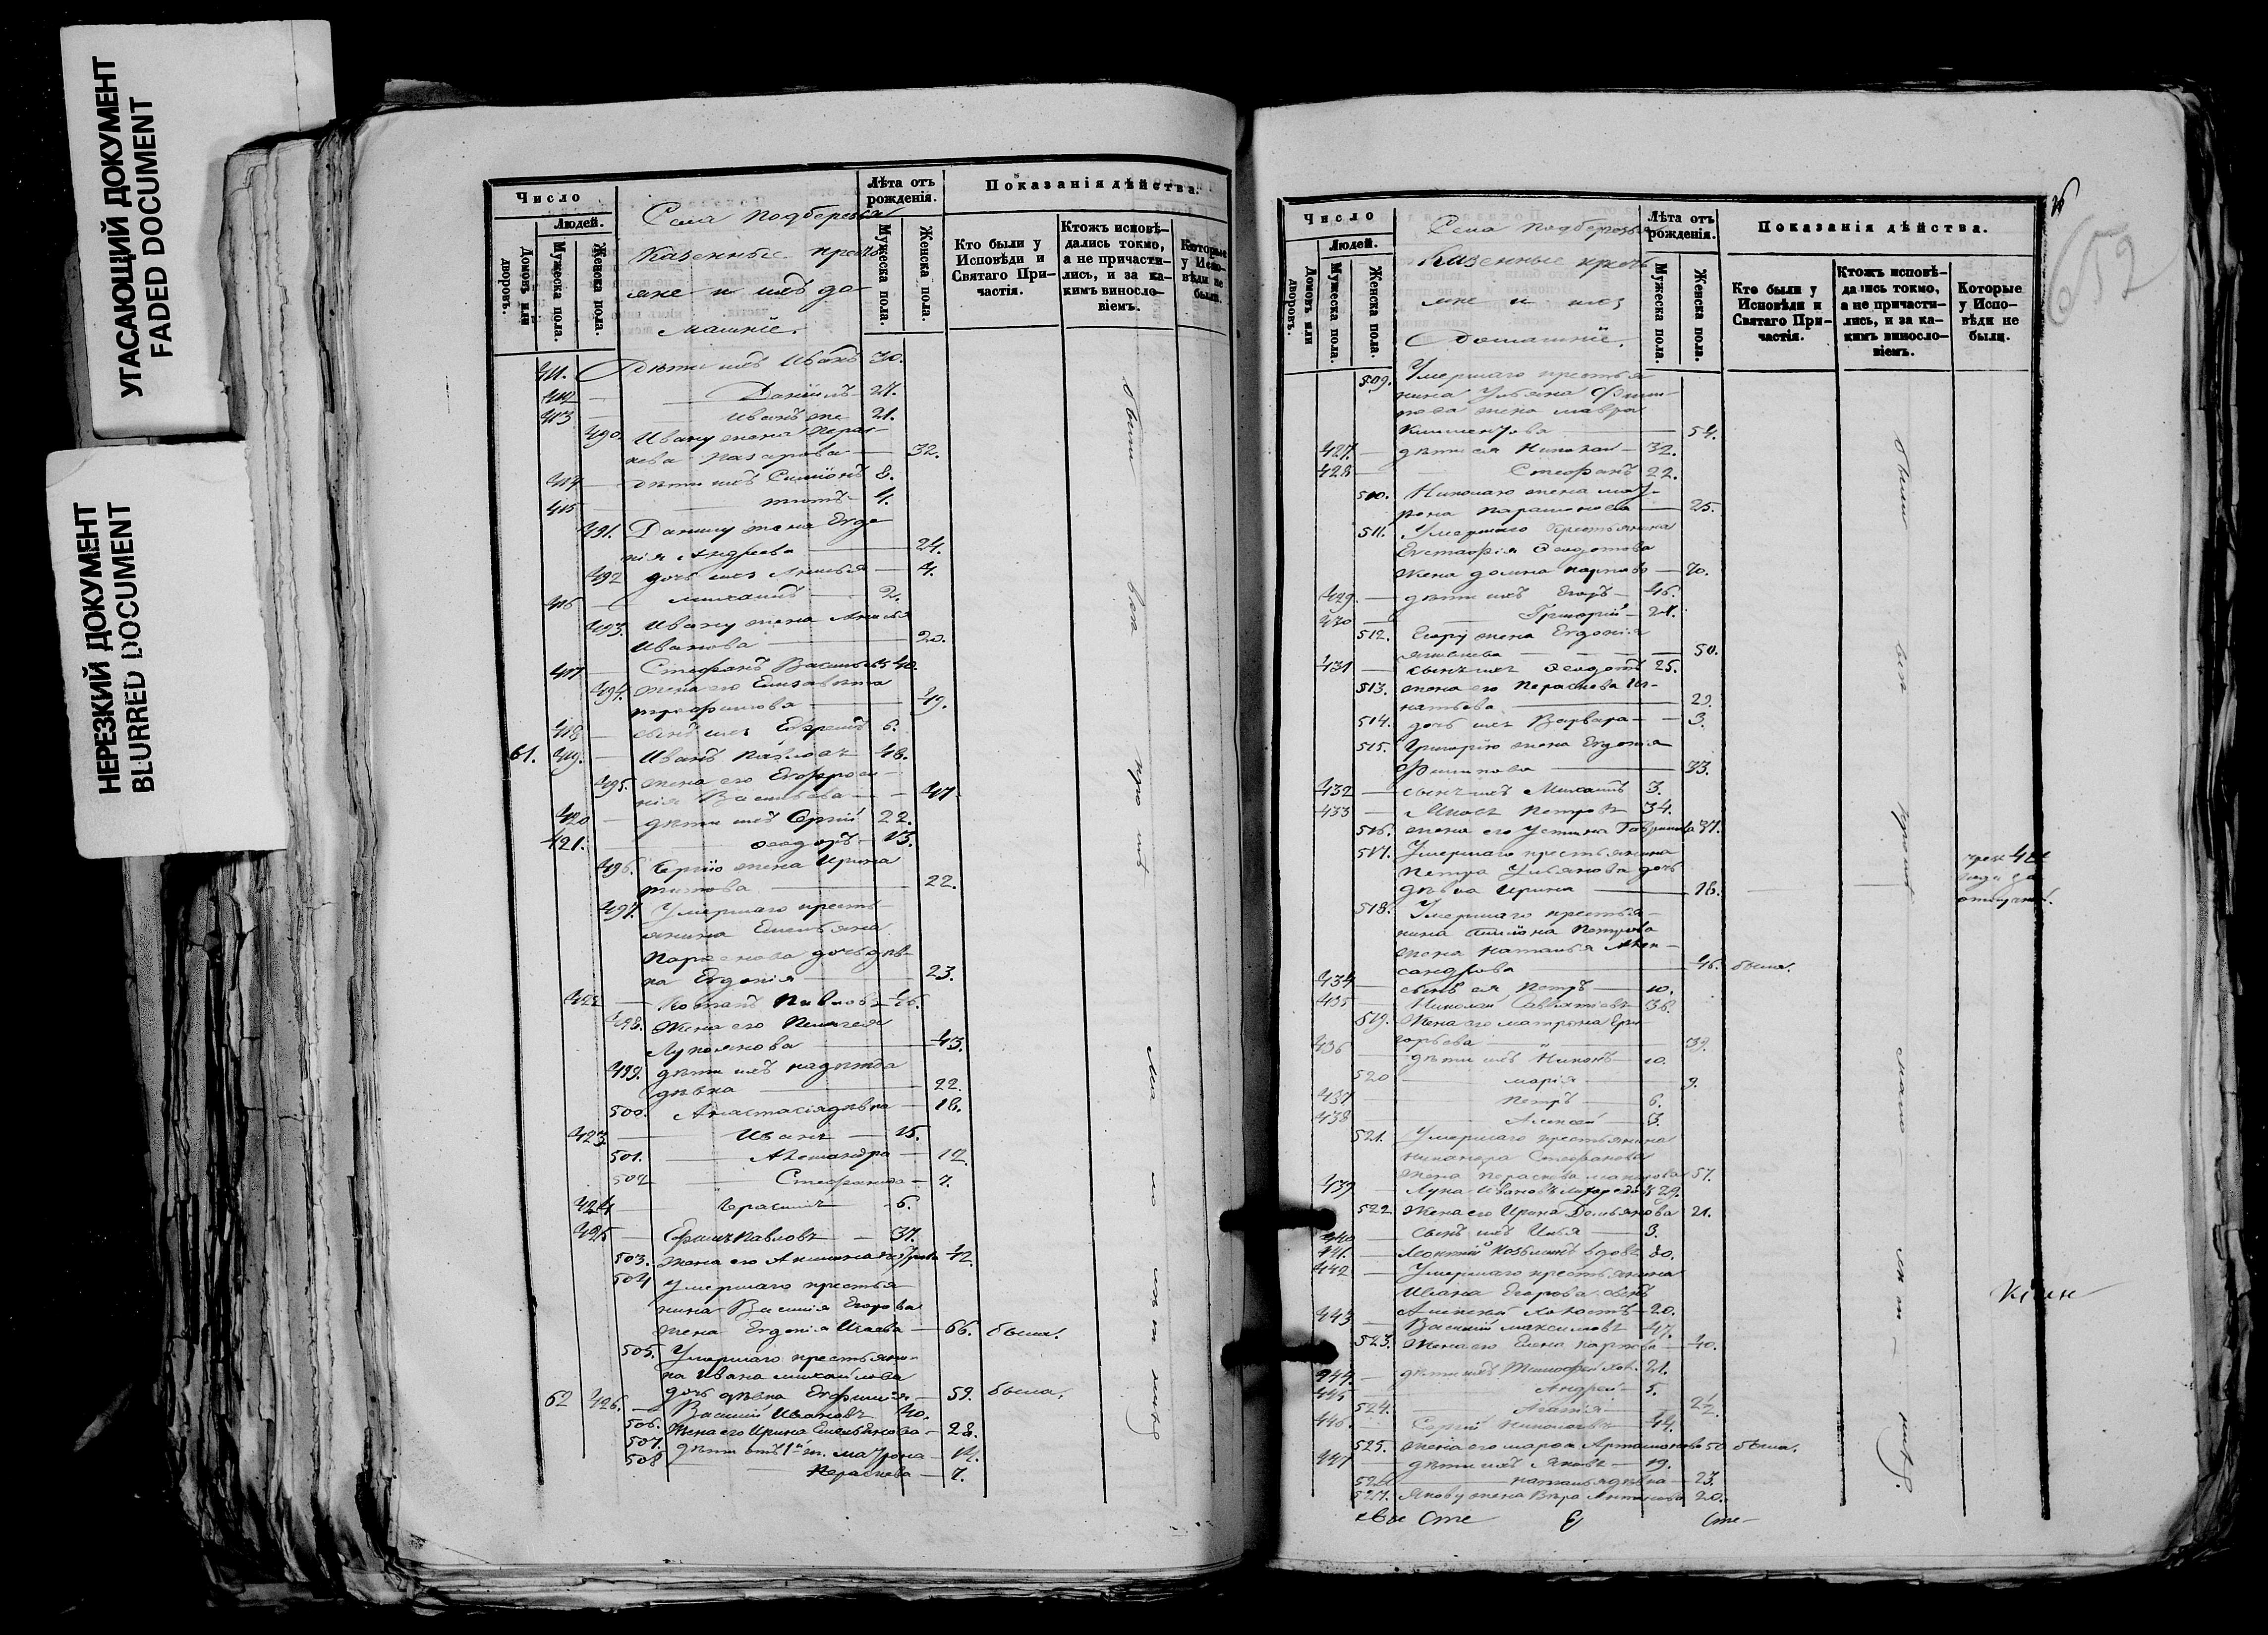 УГАСАЮЩИЙ ДОКУМЕНТ
FADED DOCUMENT
НЕРЕЗКИЙ ДОКУМЕНТ
BLURRED DOCUMENT
Число
Людей.
Домовъ или дворовъ.
Мужеска пола.
Женска пола.
Села Подберезья
Казенные кресть
яне и ихъ до
машніе.
Лѣта отъ рожденія.
Мужеска пола.
Женска пола.
Показанія дѣйства.
Кто были у Исповѣди и Святаго Причастія.
Ктожъ исповѣдались токмо, а не причастились, и за какимъ винословіемъ.
Которые у Исповѣди не были.
411. Дѣти ихъ Иванъ 30.
412 Даніилъ 27.
413 Иванъ же 21.
490. Ивану жена Парас
кева Назарова 32.
414 дѣти ихъ Симіонъ 8.
415 Титъ 4.
491. Данилу жена Евдо
кія Андреева 24.
492 дочь ихъ Анисья 4.
416 Михаилъ 2.
493. Ивану жена Анисья
Иванова 20.
417 Стефанъ Васильевъ 40.
494. жена его Елизавета
Трофимова 49.
418 сынъ ихъ Ефремъ 6.
61. 419. Иванъ Павловъ 48.
495. жена его Евфроси-
нія Васильева 47.
420 дѣти ихъ Сергій 22.
421. Ѳеодоръ 13.
496. Сергію жена Ирина
Титова 22.
497. Умершаго кресть-
янина Емельяна
дочь дѣв-
ка Евдокія 23.
422 Павловъ 46.
498. Жена его Пелагея
Лукьянова 43.
499. дѣти ихъ Надежда
дѣвка 22.
500. Анастасія дѣвка 18.
423 Иванъ 15.
501. Александра 12.
502 Стефанида 7.
424 Герасимъ 6.
425 Ефимъ Павловъ 37.
503. Жена его Акилина 42.
504 Умершаго крестья
нина Василія Егорова
жена Евдокія Исаева 66. была.
505. Умершаго крестьяни-
на Ивана Михайлова
дочь дѣвка Евфимія 59. была.
62 426. Василій Ивановъ 40.
506. Жена его Ирина Емельянова 28.
507. дѣти отъ 1й ж. Матрона 14.
508 Параскева 7.
Число
Людей.
Домовъ или дворовъ.
Мужеска пола.
Женска пола.
Села Подберезья
Казенные кресть
яне и ихъ
домашніе.
Лѣта отъ рожденія.
Мужеска пола.
Женска пола.
Показанія дѣйства.
Кто были у Исповѣди и Святаго Причастія.
Ктожъ исповѣдались токмо, а не причастились, и за какимъ винословіемъ.
Которые у Исповѣди не были.
652
509. Умершаго крестья
нина Ульяна Филип-
пова жена Мавра
Климентова 54.
427. дѣти ея Николай 32.
428 Стефанъ 22.
510. Николаю жена Мат-
рона Парамонова 25.
511. Умершаго крестьянина
Евстафія Ѳеодотова
жена Домна Карпова 70.
429. дѣти ихъ Егоръ 46.
430 Григорій 24.
512. Егору жена Евдокія
Яковлева 50.
431 сынъ ихъ Ѳеодотъ 25.
513. жена его Параскева Иг-
натьева 29.
514. дочь ихъ Варвара 3.
515. Григорію жена Евдокія
Филипова 33.
432 сынъ ихъ Михаилъ 3.
433 Яковъ Петровъ 34.
516. жена его Устинья Гаврилова 37.
517. Умершаго крестьянина
Петра Ульянова дочь
дѣвка Ирина 18.
518. Умершаго крестья-
нина Симіона Петрова
жена Наталья Алек-
сандрова 46. была.
434 сынъ ея Петръ 10.
435 Николай Савватіевъ 38.
519. Жена его Матрона Гри-
горьева 39.
436 дѣти ихъ Никонъ 10.
520 Марія 9.
437 Петръ 6.
438 Алексей 3.
521. Умершаго крестьянина
Никанора Стефанова
жена Параскева 57.
439 Лука Ивановъ 29.
522 Жена его Ирина Демьянова 21.
440 сынъ ихъ Илья 3.
441. Леонтій Козьминъ вдовъ 80.
442 Умершаго крестьянина
Ивана Егорова сынъ
Алексей холостъ 20.
443 Василій Максимовъ 47.
523. Жена его Елена Карпова 40.
444. дѣти ихъ Тимофей хол. 21.
445 Андрей 5.
524. Агафія 2½.
446. Сергій Николаевъ 44.
525. жена его Марфа Артамонова 50 была.
447 дѣти ихъ Яковъ 19.
526 Наталья дѣвка 23.
527. Якову жена Вѣра Антонова 20.